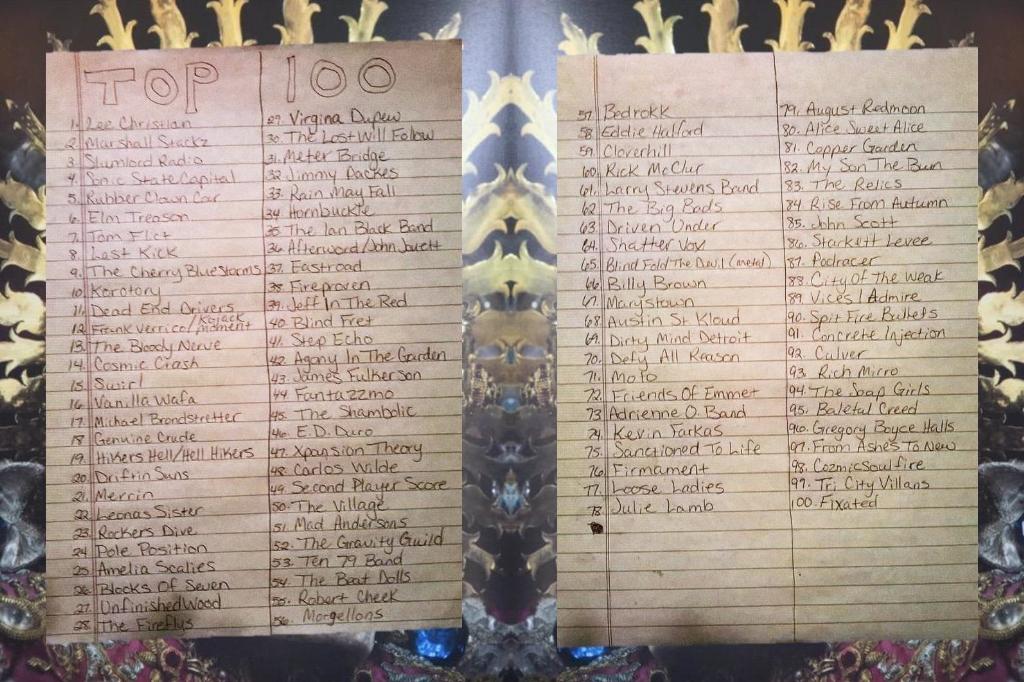 TOP 100
1. Lee Christian
2. Marshall Stackz
3. Slumlord Radio
4. Sonic State Capital
5. Rubber Clown Car
6. Elm Treason
7. Tom Flet
8. Last Kick
9. The Cherry Bluestorms
10. Korctory
11. Dead End Drivers
12. Frank Verrico/Kojack Moment
13. The Bloody Nerve
14. Cosmic Crash
15. Swirl
16. Vanilla Wafa
17. Michael Brandstretter
18. Genuine Crude
19. Hikers Hell/Hell Hikers
20. Driftin Suns
21. Merrin
22. Leonas Sister
23. Rockers Dive
24. Pole Position
25. Amelia Scalies
26. Blocks Of Seven
27. Unfinished Wood
28. The Fireflys
29. Virgina Dupew
30. The Lost Will Follow
31. Meter Bridge
32. Jimmy Dackes
33. Rain May Fall
34. Hornbuckle
35. The Ian Black Band
36. Afterword/John Jouett
37. Eastroad
38. Fireproven
39. Jeff In The Red
40. Blind Fret
41. Step Echo
42. Agany In The Garden
43. James Fulkerson
44. Fantazzmo
45. The Shambolic
46. E.D. Duro
47. Xpansion Theory
48. Carlos Wilde
49. Second Player Score
50. The Village
51. Mad Andersons
52. The Gravity Guild
53. Ten 79 Band
54. The Beat Dolls
55. Robert Cheek
56. Morgellons
57. Bedrokk
58. Eddie Halford
59. Cloverhill
60. Rick McClur
61. Larry Stevens Band
62. The Big Bads
63. Driven Under
64. Shatter Vox
65. Blind Fold The Devil (metal)
66. Billy Brown
67. Marystown
68. Austin St Kloud
69. Dirty Mind Detroit
70. Defy All Reason
71. Moto
72. Friends Of Emmet
73. Adrienne O. Band
74. Kevin Farkas
75. Sanctioned To Life
76. Firmament
77. Loose Ladies
78. Julie Lamb
79. August Redmoon
80. Alice Sweet Alice
81. Copper Garden
82. My Son The Bum
83. The Relics
84. Rise From Autumn
85. John Scott
86. Starkutt Levee
87. Podracer
88. City Of The Weak
89. Vices I Admire
90. Spit Fire Bullets
91. Concrete Injection
92. Culver
93. Rich Micro
94. The Soap Girls
95. Baletul Creed
96. Gregory Boyce Halls
97. From Ashes To New
98. Cozmicsoulfire
99. Tri City Villans
100. Fixated